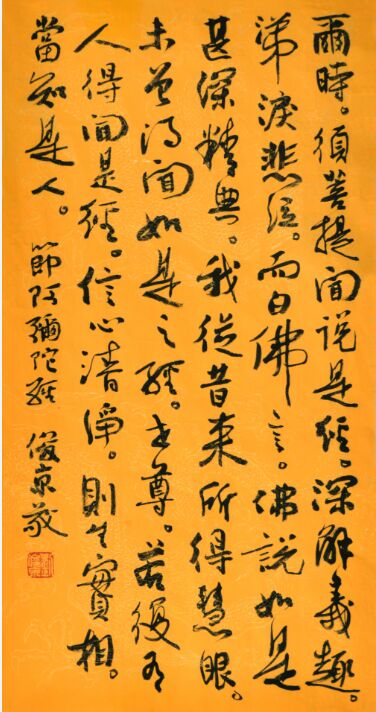 爾時。須菩提聞說是經。深解義趣。
涕淚悲泣。而白佛言。佛說如是
甚深精典。我從昔來所得慧眼。
未曾得聞如是之經。世尊。若復有
人得聞是經。信心清淨。則生實相。
當知是人。
節阿彌陀經 俊京敬